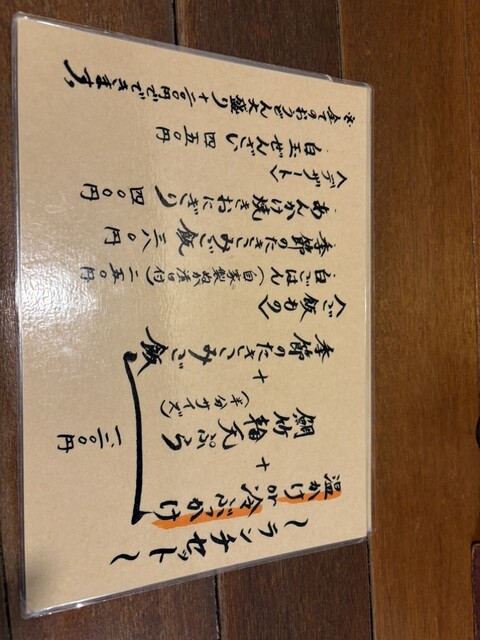 〜ランチセット〜
温かけ or 冷ぶっかけ
+
鯛竹輪天ぷら
(半分サイズ)
+
季節のたきこみご飯
〈ご飯もの〉
白ごはん(自家製ぬか漬け付) 二五〇円
季節のたきこみご飯 三八〇円
あんかけ焼きおにぎり 四〇〇円
〈デザート〉
白玉ぜんざい 四五〇円
※全てのおうどん大盛り
円でできます。